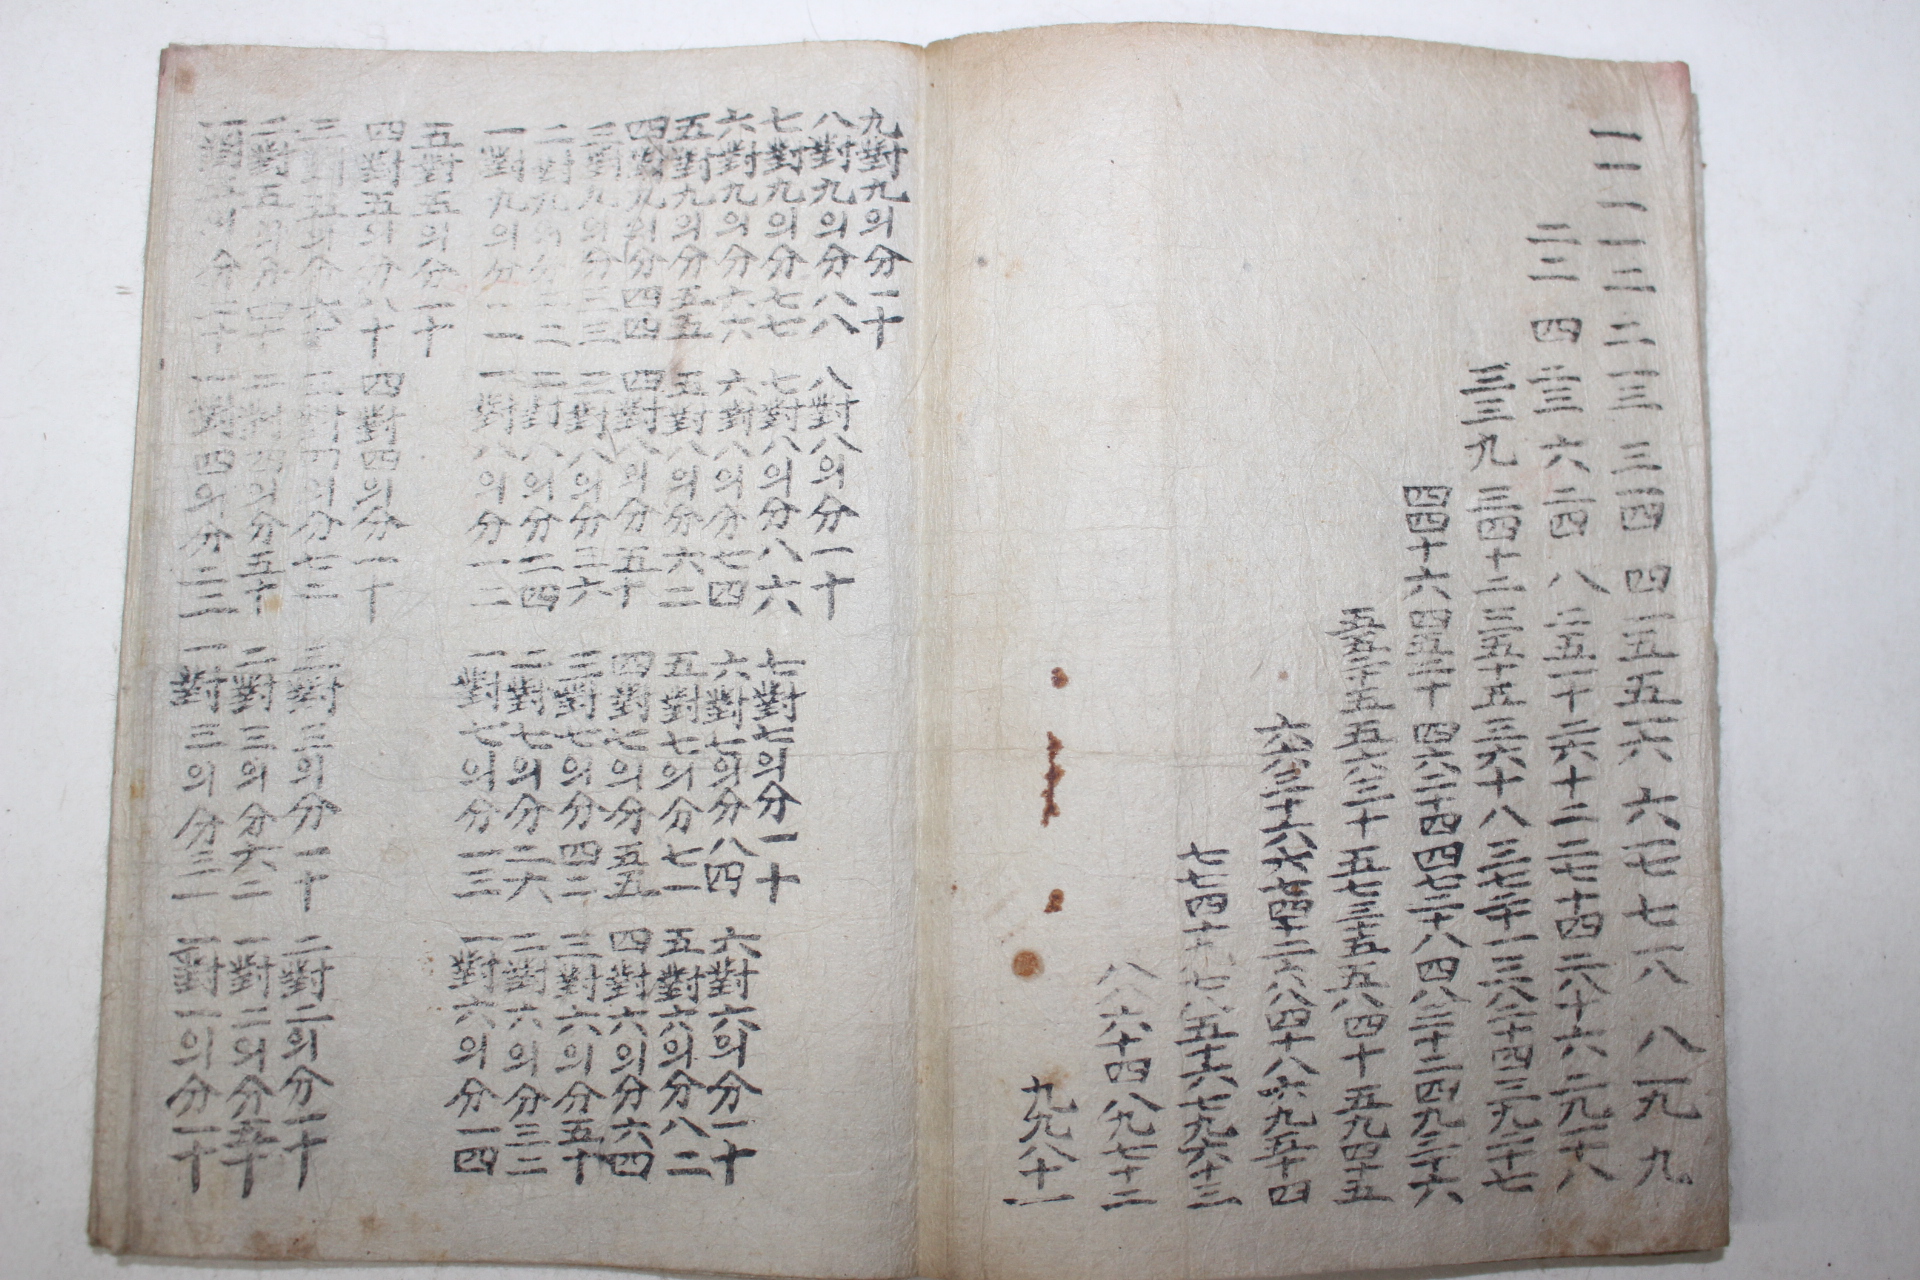 一一一 一二二 一三三 一四四 一五五 一六六 一七七 一八八 一九九
二二四 二三六 二四八 二五一十 二六十二 二七十四 二八十六 二九十八
三三九 三四十二 三五十五 三六十八 三七二十一 三八二十四 三九二十七
四四十六 四五二十 四六二十四 四七二十八 四八三十二 四九三十六
五五二十五 五六三十 五七三十五 五八四十 五九四十五
六六三十六 六七四十二 六八四十八 六九五十四
七七四十九 七八五十六 七九六十三
八八六十四 八九七十二
九九八十一
九對九의分一十
八對九의分八八 八對八의分一十
七對九의分七七 七對八의分八六 七對七의分一十
六對九의分六六 六對八의分七四 六對七의分八四 六對六의分一十
五對九의分五五 五對八의分六二 五對七의分七一 五對六의分八二
四對九의分四四 四對八의分五十 四對七의分五五 四對六의分六四
三對九의分三三 三對八의分三六 三對七의分四二 三對六의分五十
二對九의分二二 二對八의分二四 二對七의分二六 二對六의分三三
一對九의分一一 一對八의分一二 一對七의分一三 一對六의分一四
五對五의分一十
四對五의分八十 四對四의分一十
三對五의分六十 三對四의分七二 三對三의分一十 二對二의分一十
二對五의分四十 二對四의分五十 二對三의分六二 一對二의分五十
一對五의分二十 一對四의分二三 一對三의分三一 一對一의分一十